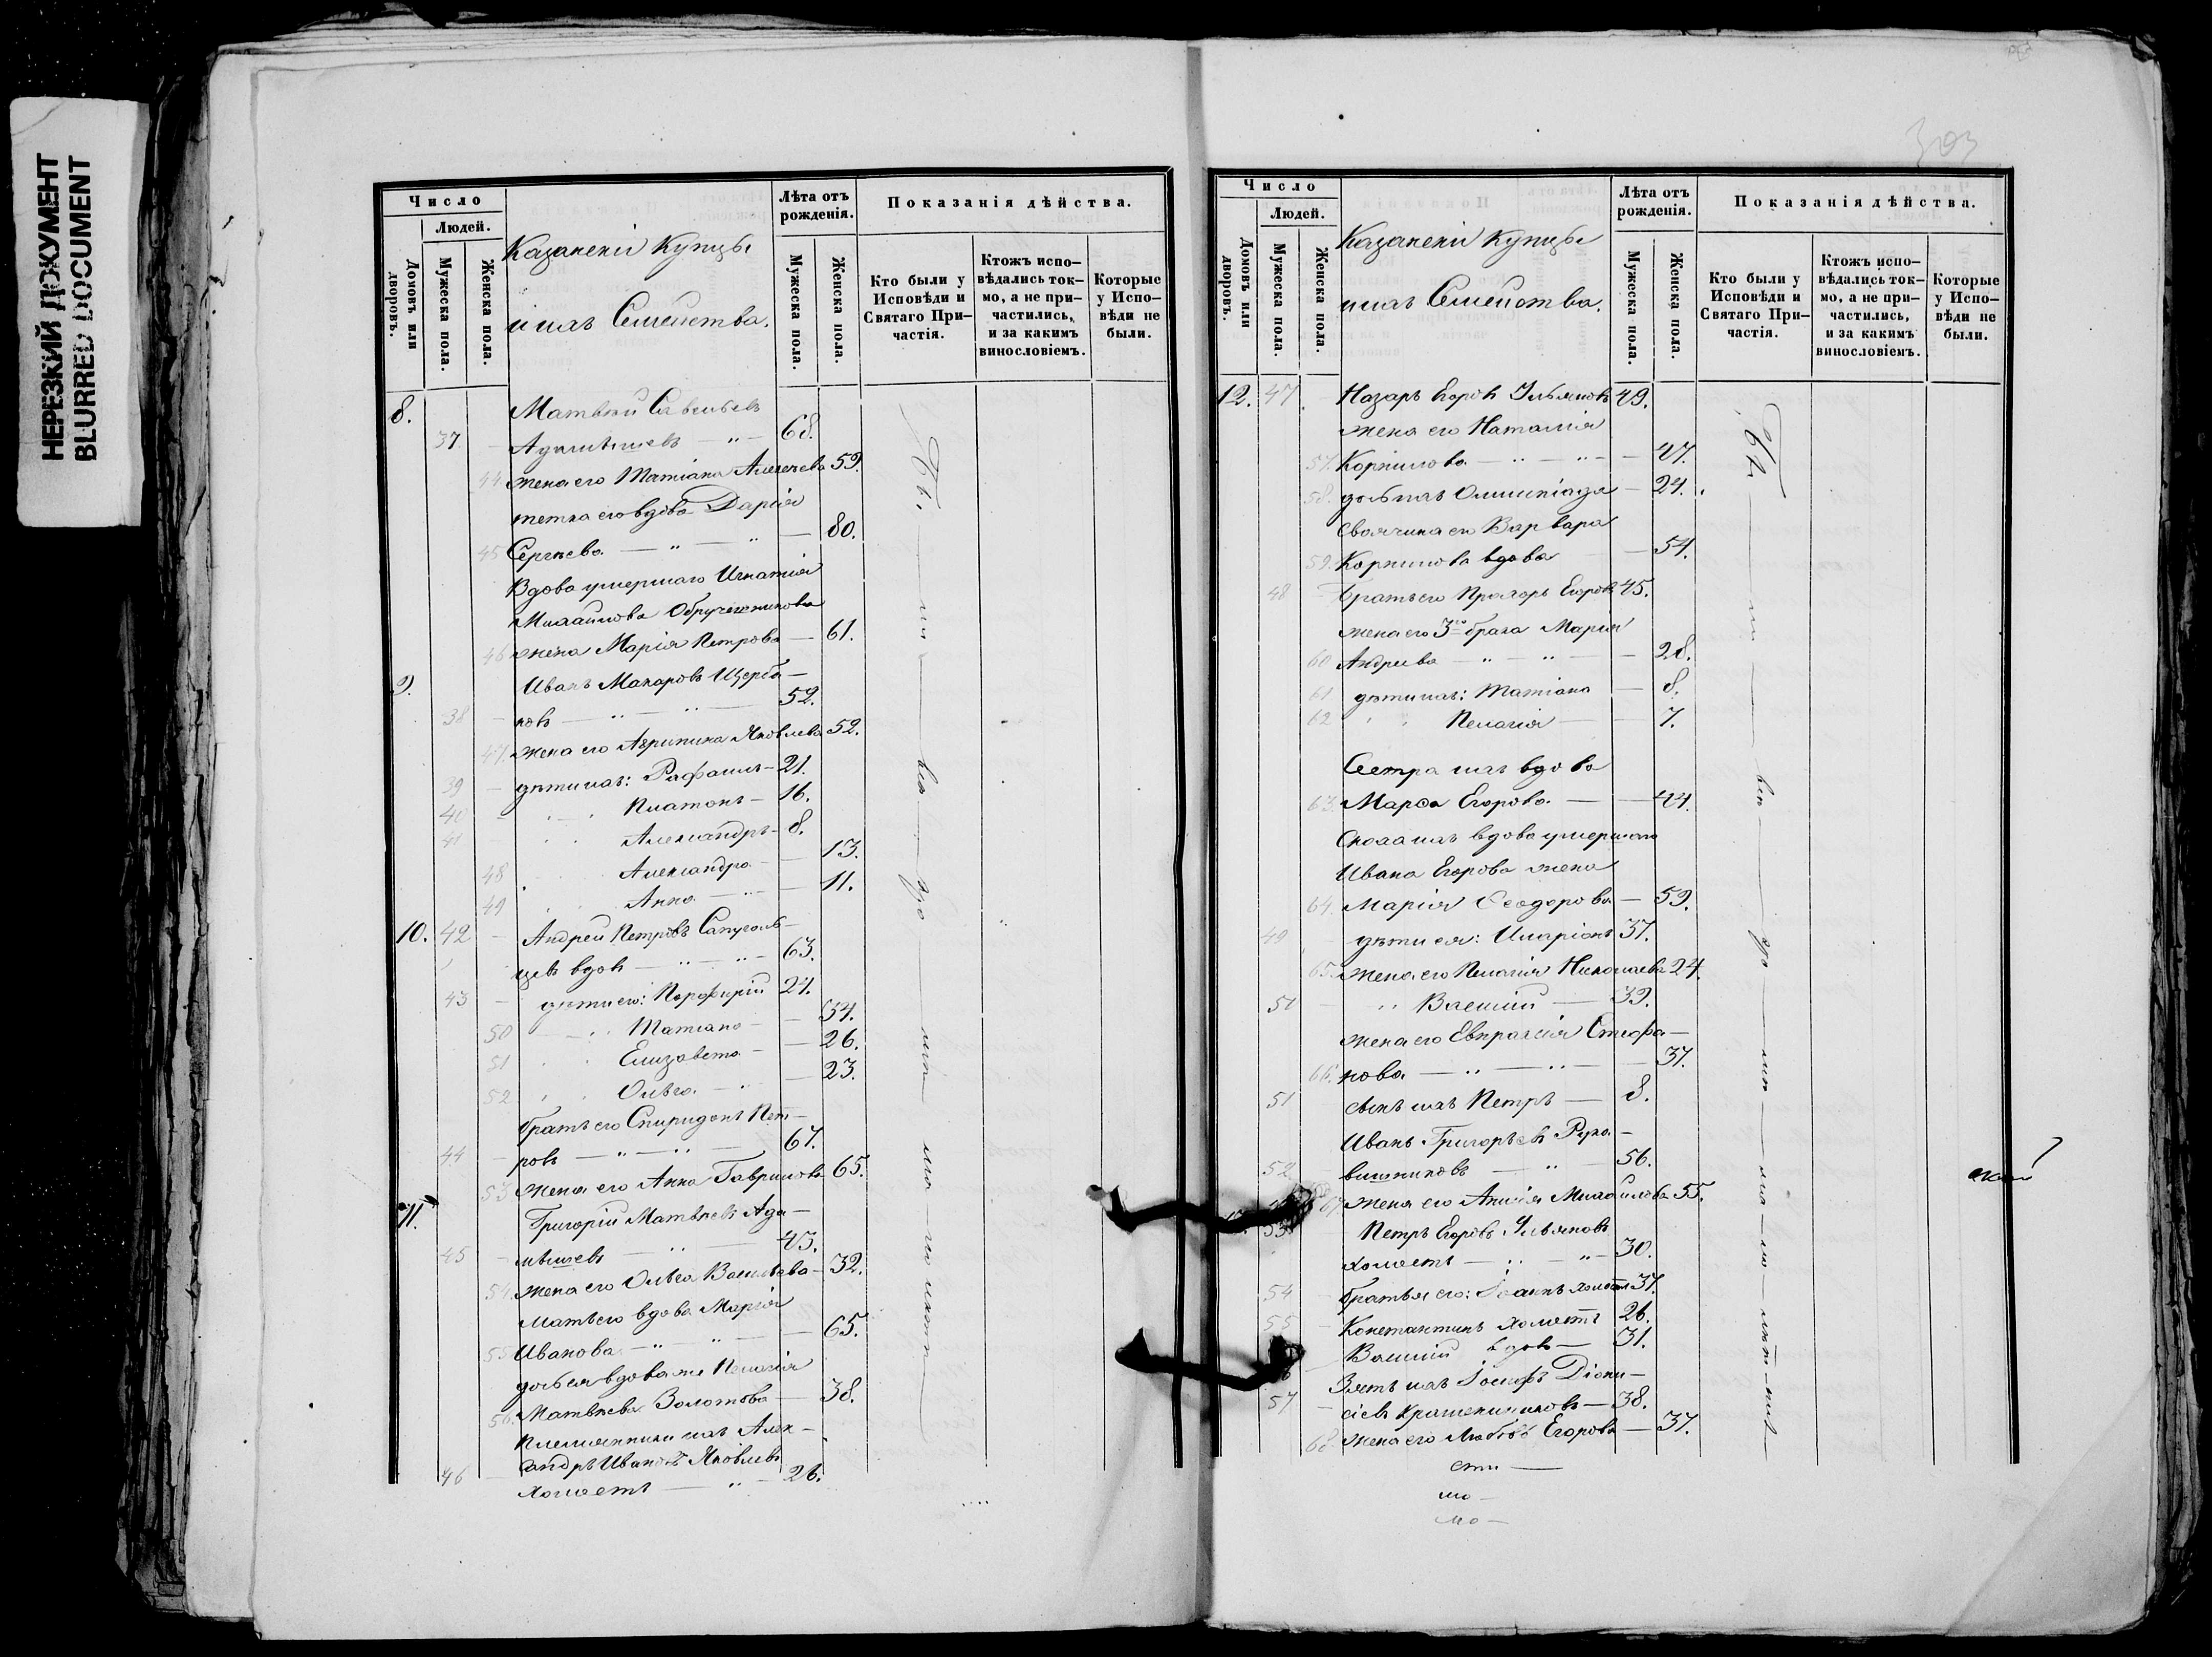 НЕРЕЗКИЙ ДОКУМЕНТ
BLURRED DOCUMENT
Число
Людей.
Домовъ или дворовъ.
Мужеска пола.
Женска пола.
Казанскіи Купцы
и ихъ Семейства.
Лѣта отъ рожденія.
Мужеска пола.
Женска пола.
Показанія дѣйства.
Кто были у Исповѣди и Святаго Причастія.
Ктожъ исповѣдались токмо, а не причастились, и за какимъ винословіемъ.
Которые у Исповѣди не были.
8. Матвѣй Савельевъ
37 68.
44 жена его Татіана Алексѣева 59.
тетка его вдова Дарія
45 Сергѣева 80.
Вдова умершаго Игнатія
Михайлова
46 жена Марія Петрова 61.
9. Иванъ Макаровъ Щерба-
38 ковъ 52.
47. жена его Агрипина Яковлева 52.
39 дѣти ихъ: Рафаилъ 21.
40 Платонъ 16.
41 Александръ 8.
48 Александра 13.
49 Анна 11.
10. 42 Андрей Петровъ Сапуголь-
цевъ вдов 63.
43 дѣти его: Порфирій 24.
50 Татіана 34.
51 Елизавета 26.
52 Ольга 23.
братъ его Спиридонъ Пет-
44 ровъ 67.
53 жена его Анна Гаврилова 65.
11. Григорій Матвѣевъ Ада-
45 мышевъ 43.
54. жена его Ольга Васильева 32.
мать его вдова Марія
55 Иванова 65.
дочь ея вдова же Пелагія
56. Матвѣева Золотова 38.
племянники ихъ Алек-
сандръ Иванов Яковлевъ
46 холостъ 26.
303
Число
Людей.
Домовъ или дворовъ.
Мужеска пола.
Женска пола.
Казанскіи Купцы
и ихъ Семейства.
Лѣта отъ рожденія.
Мужеска пола.
Женска пола.
Показанія дѣйства.
Кто были у Исповѣди и Святаго Причастія.
Ктожъ исповѣдались токмо, а не причастились, и за какимъ винословіемъ.
Которые у Исповѣди не были.
12. 47. Назаръ Егоров Ульянов 49.
жена его Наталія
57. Корнилова 47.
58. дочь ихъ Олимпіада 24.
Своячина его Варвара
59. Корнилова вдова 54.
48 Братъ его Прохоръ Егоровъ 45.
жена его 3го брака Марія
60 Андреева 28.
61 дѣти ихъ: Татіана 8.
62 Пелагія 7.
Сестра ихъ вдова
63. Марѳа Егорова 44.
Сноха ихъ вдова умершаго
Ивана Егорова жена
64. Марія Ѳеодорова 59.
49 дѣти ея: Иларіонъ 37.
65. жена его Пелагія Николаева 24.
50 Василій 39.
жена его Евпраксія Стефа-
66. нова 37.
51 сынъ ихъ Петръ 8.
Иванъ Григорьев Рука-
52 вишниковъ 56.
67 жена его Анисія Михайлова 55.
53 Петръ Егоровъ Ульяновъ
холостъ 30.
54 братья его: Іоаннъ холост 37.
55 Константинъ холостъ 26.
Василій вдов 31.
Зять ихъ Іосифъ Діони-
57 сіевъ Крашенинниковъ 38.
68. жена его Любовь Егорова 37.